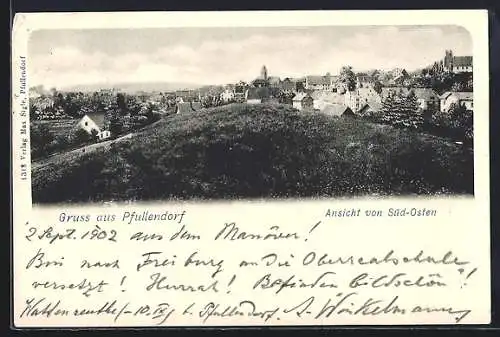 1318 Verlag Max Sigle, Pfullendorf
Gruss aus Pfullendorf
Ansicht von Süd-Osten
2 Sept. 1902 aus dem Manöver!
Bin nach Freiburg an die Oberrealschule
versetzt! Hurrah! Befinden bildschön!
b. Pfullendorf. A. Winkelmann